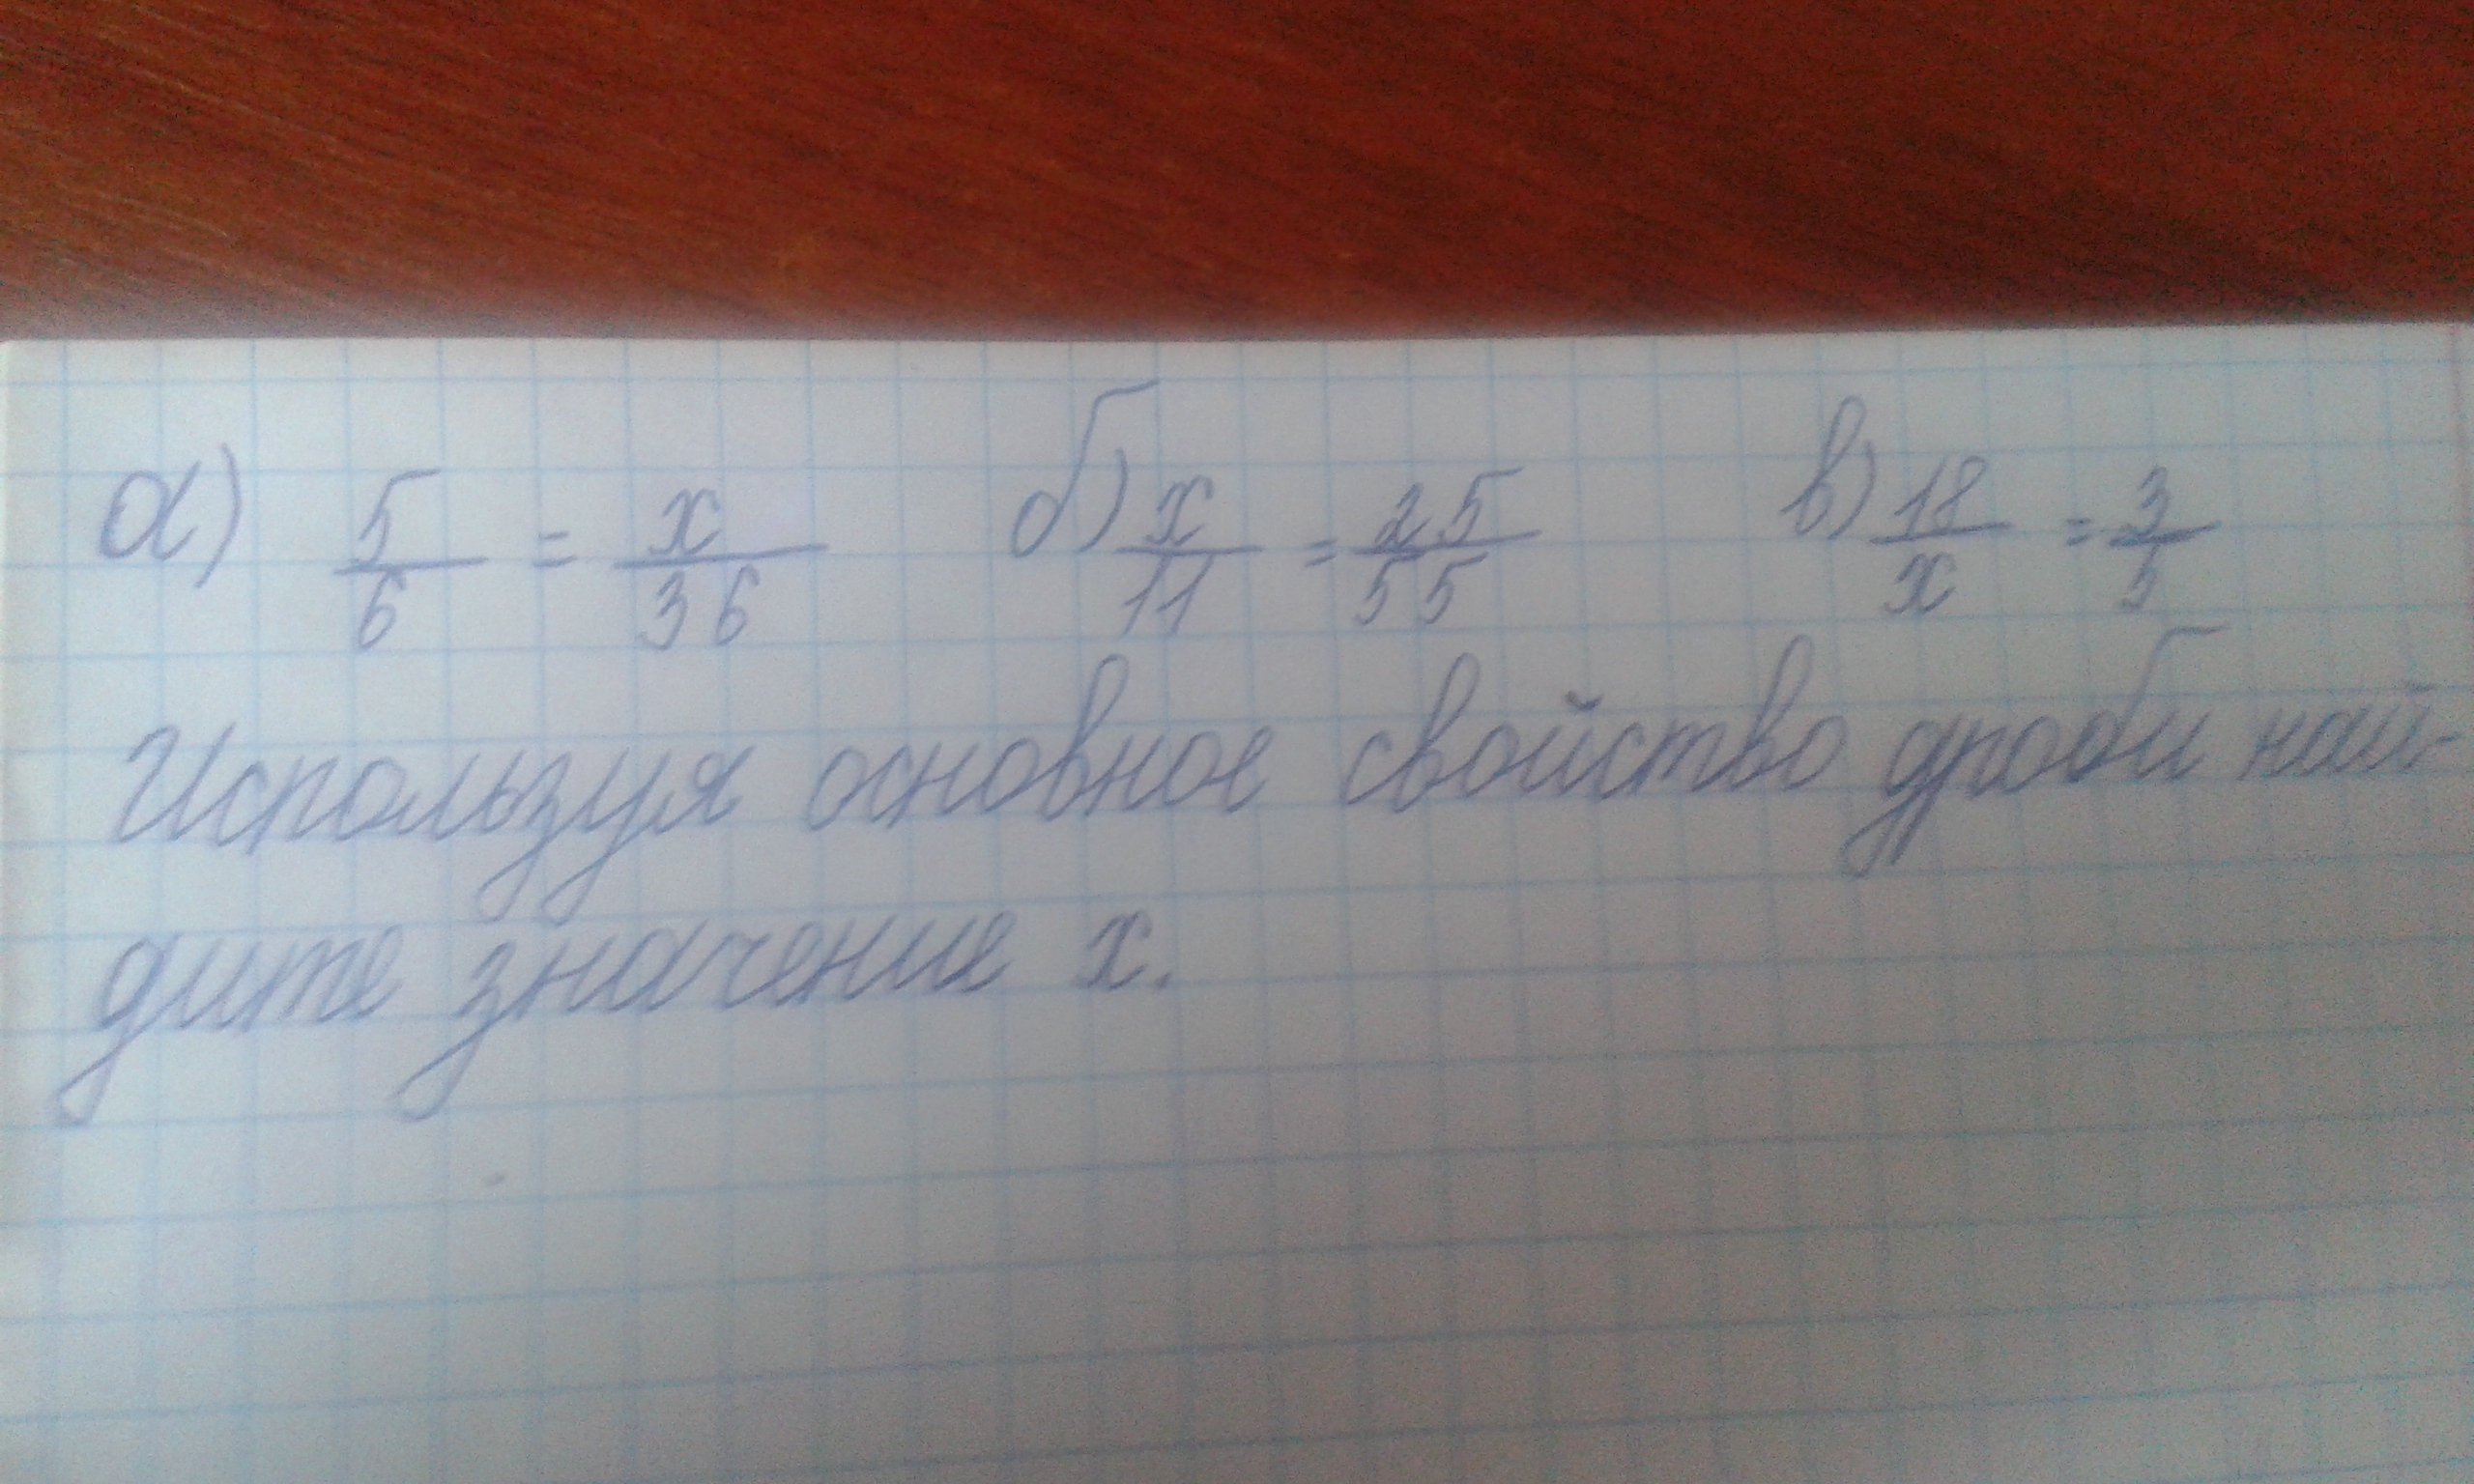 а) 5/6 = x/36 б) x/11 = 25/55 в) 18/x = 3/5
Используя основное свойство дроби най-
дите значение x.